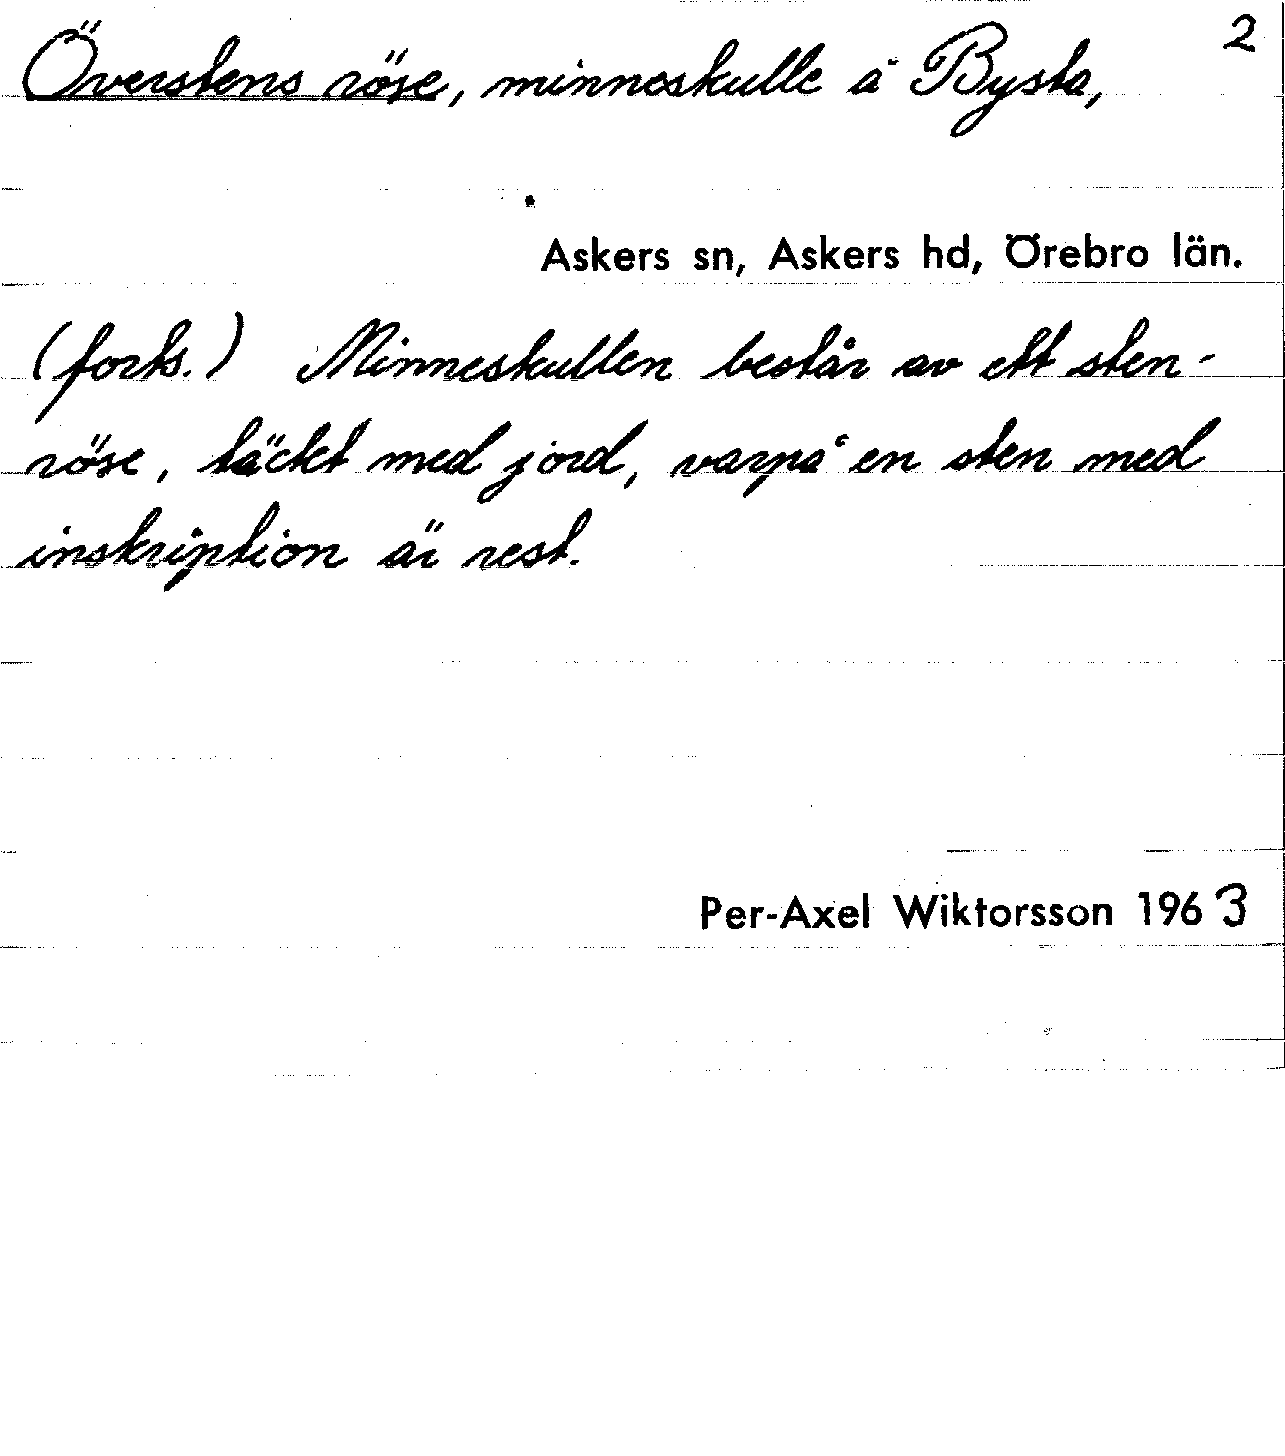 2
Överstens röse, minneskulle å Bysta,
Askers sn, Askers hd, Örebro län.
(forts.) Minneskullen består av ett sten-
röse, täckt med jord, varpå en sten med
inskription är rest.
Per-Axel Wiktorsson 1963